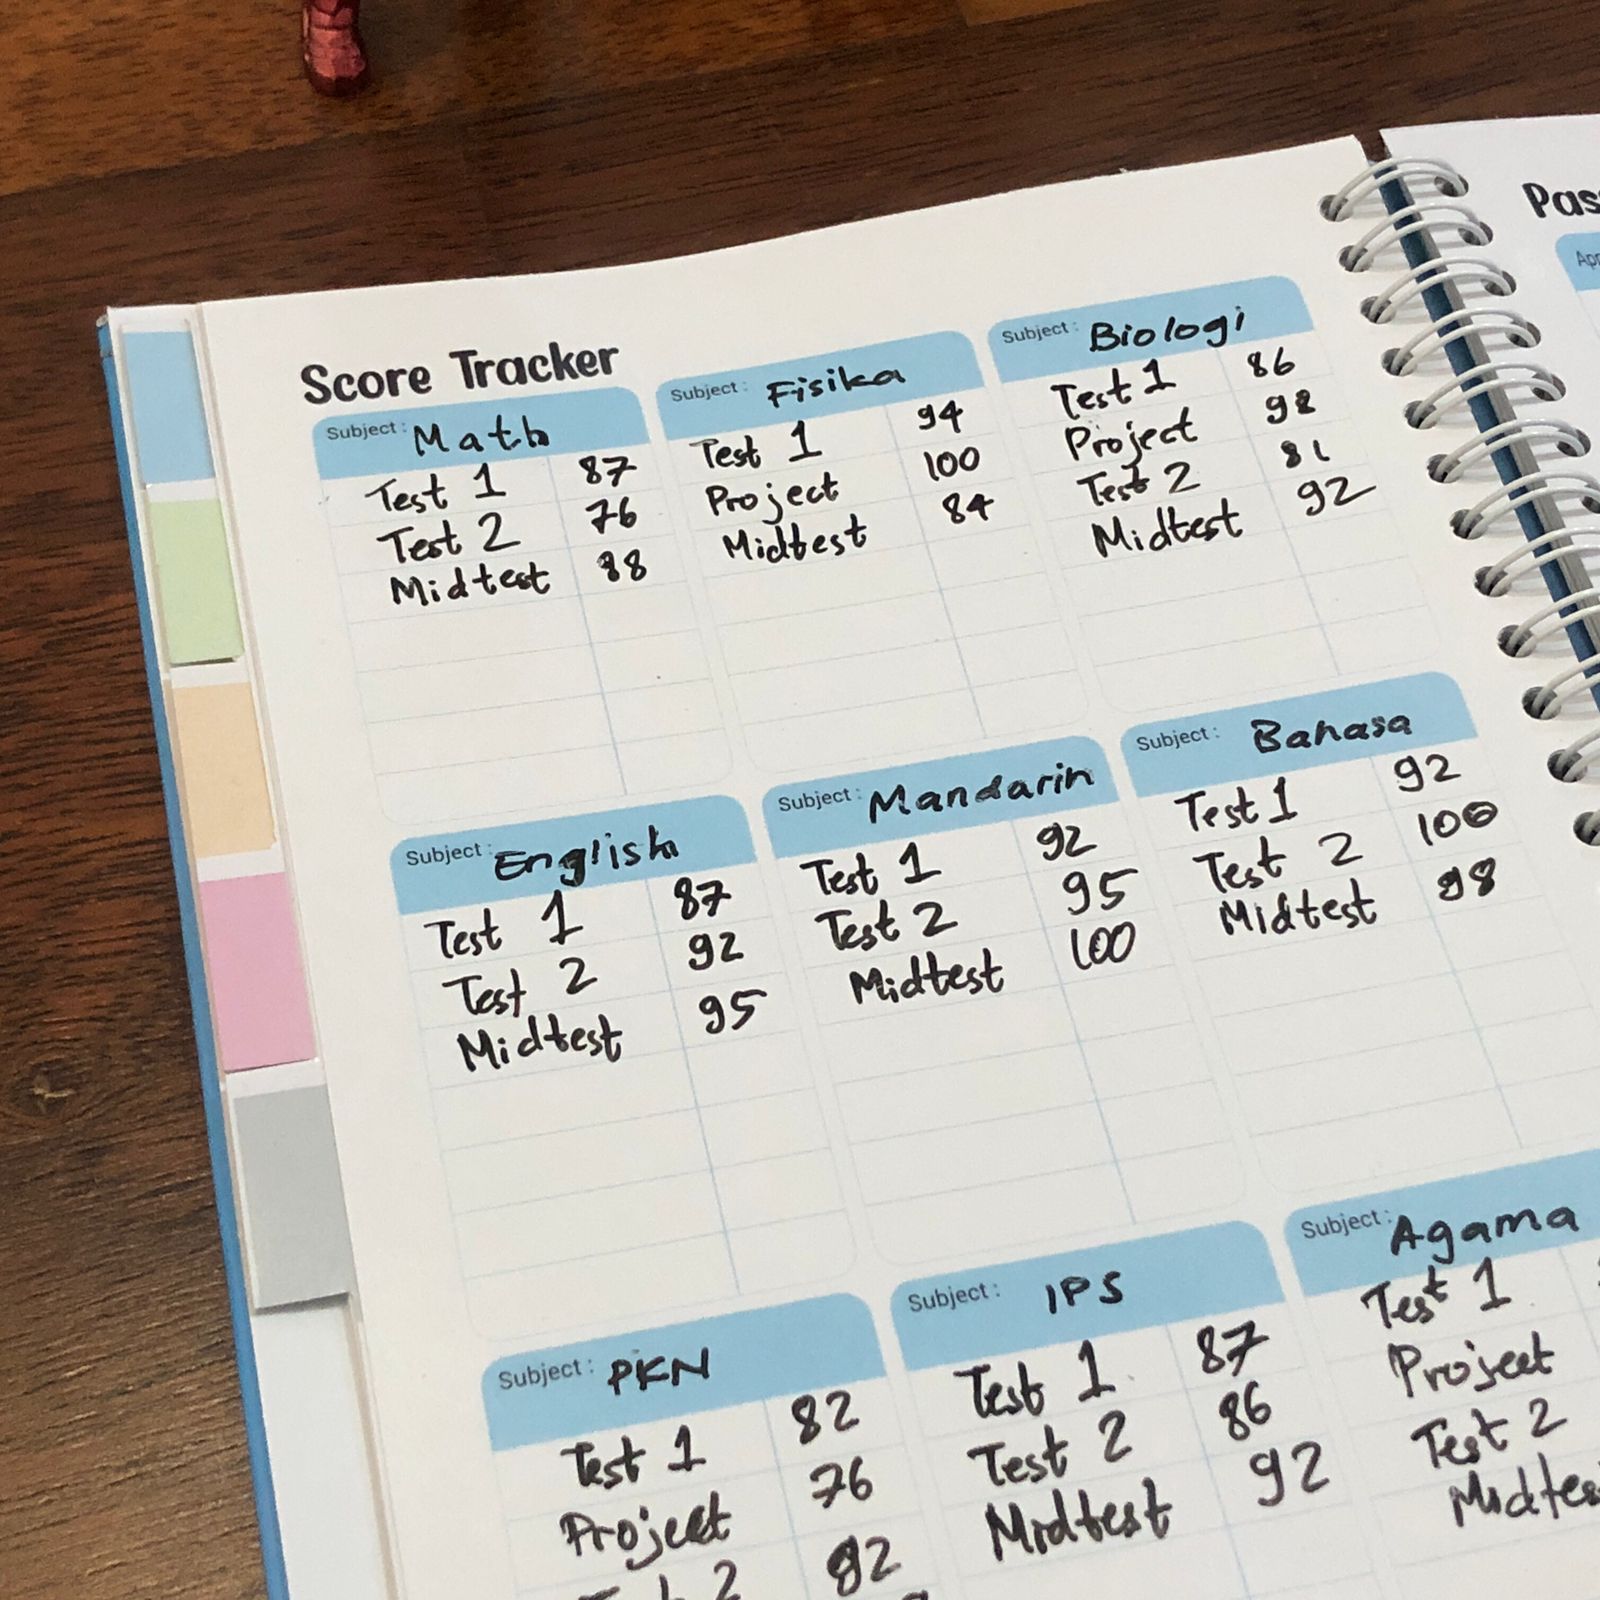 Score Tracker
Subject: Math
Test 1 87
Test 2 76
Midtest 88
Subject: Fisika
Test 1 94
Project 100
Midtest 84
Subject: Biologi
Test 1 86
Project 92
Test 2 81
Midtest 92
Subject: English
Test 1 87
Test 2 92
Midtest 95
Subject: Mandarin
Test 1 92
Test 2 95
Midtest 100
Subject: Bahasa
Test 1 92
Test 2 100
Midtest 98
Subject: PKN
Test 1 82
Project 76
Test 2 92
Subject: IPS
Test 1 87
Test 2 86
Midtest 92
Subject: Agama
Test 1
Project
Test 2